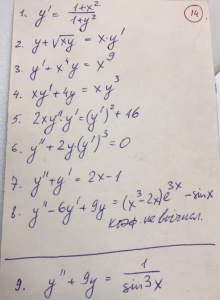 14
1. y' = \frac{1+x²}{1+y²}
2. y+√xy = x·y'
3. y'+x⁴y = x⁹
4. xy'+4y = xy³
5. 2xy''·y' = (y')²+16
6. y''+2y(y')³=0
7. y''+y' = 2x-1
8. y''-6y'+9y = (x³-2x)e³ˣ-sinx
коэф. не вычисл.
9. y''+9y = \frac{1}{sin3x}